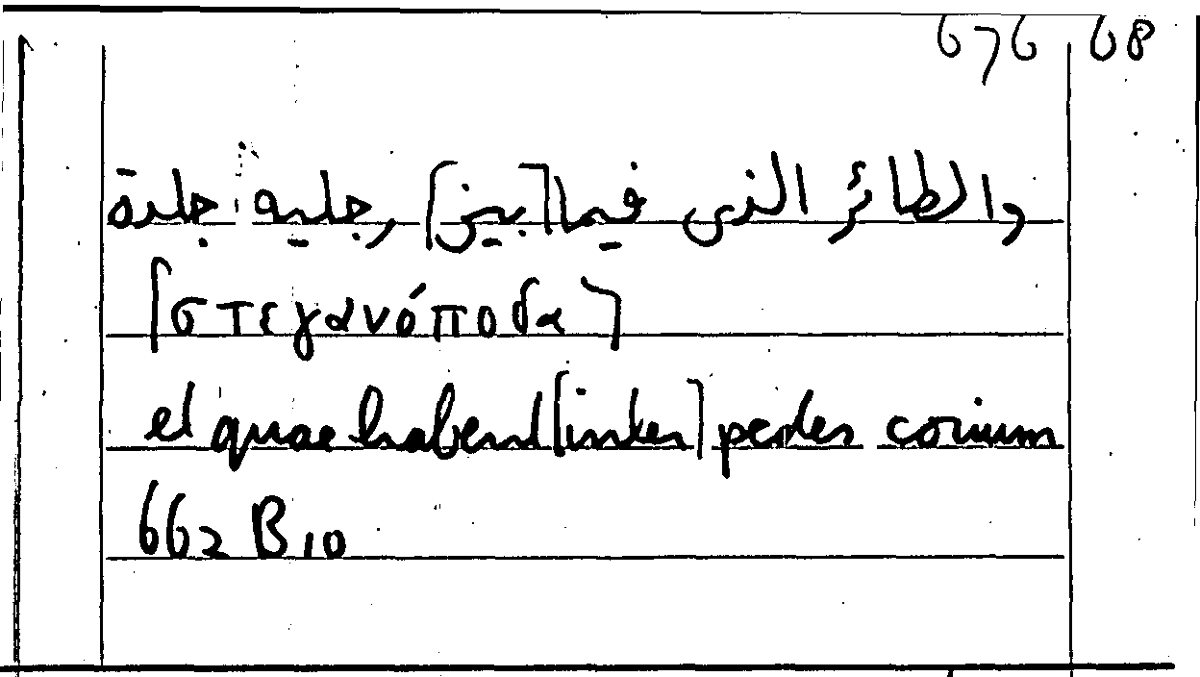 676 68
والطائر الذى فيما [بين] رجليه جلدة
⌈στεγανόποδα⌉
et quae habent [inter] pedes corium
662 B 10